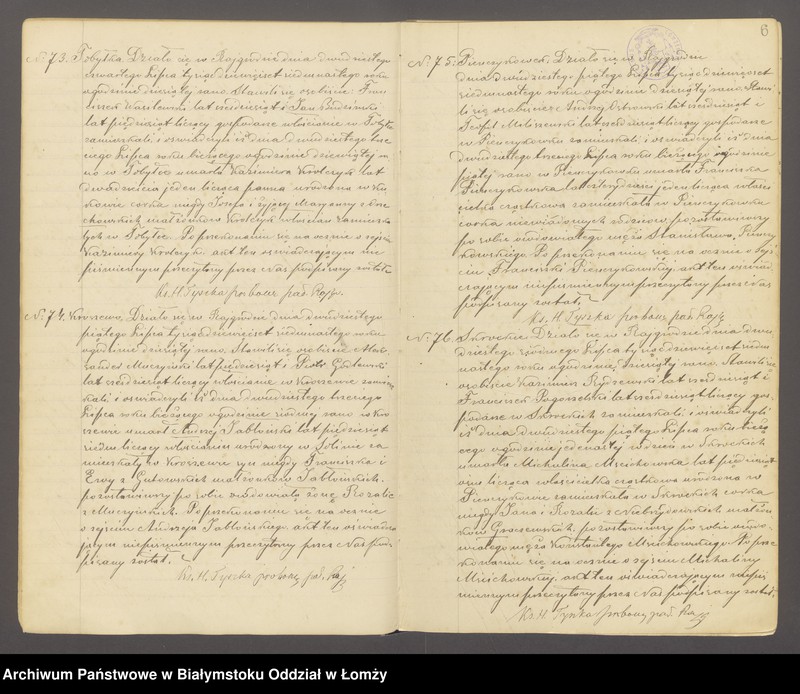 6
N. 73. Tobyłka. Działo się w Rajgrodzie dnia dwudziestego
czwartego lipca tysiąc dziewięćset siedemnastego roku
o godzinie dziesiątej rano. Stawili się osobiście:
lat sześćdziesiąt i Jan
lat pięćdziesiąt liczący gospodarze włościanie w Tobyłce
zamieszkali i oświadczyli iż dnia dwudziestego trze-
ciego lipca roku bieżącego o godzinie dziewiątej ra-
no w Tobyłce umarła Kazimiera lat
dwadzieścia jeden licząca panna urodzona w
córka niegdy Józefa i żyjącej Maryanny z
małżonków włościan zamieszka-
łych w Tobyłce. Po przekonaniu się naocznie o zejściu
Kazimiery akt ten oświadczającym nie
piśmiennym przeczytany przez Nas podpisany został.
Ks. H. Tyszka proboszcz par. Rajg.
N. 74. Kroszewo. Działo się w Rajgrodzie dnia dwudziestego
piątego lipca tysiąc dziewięćset siedemnastego roku
o godzinie dziesiątej rano. Stawili się osobiście Alek-
sander Muczyński lat pięćdziesiąt i Piotr
lat sześćdziesiąt liczący włościanie w Kroszewie zamiesz-
kali i oświadczyli iż dnia dwudziestego trzeciego
lipca roku bieżącego o godzinie siódmej rano w Kro-
szewie umarł Andrzej Jabłoński lat pięćdziesiąt
siedem liczący włościanin urodzony w Solinie za-
mieszkały w Kroszewie syn niegdy Franciszka i
Ewy z Gutowskich małżonków Jabłońskich.
pozostawiwszy po sobie owdowiałą żonę Rozalię
z Muczyńskich. Po przekonaniu się naocznie
o zejściu Andrzeja Jabłońskiego. akt ten oświadcza-
jącym niepiśmiennym przeczytany przez Nas pod-
pisany został.
Ks. H. Tyszka proboszcz par. Rajg
N. 75. Pieńczykówek. Działo się w Rajgrodzie
dnia dwudziestego piątego lipca tysiąc dziewięćset
siedemnastego roku o godzinie dziesiątej rano. Stawi-
li się osobiście: Jędrzej Ostrowski lat sześćdziesiąt i
Józef Maliszewski lat sześćdziesiąt liczący gospodarze
w Pieńczykówku zamieszkali i oświadczyli iż dnia
dwudziestego trzeciego lipca roku bieżącego o godzinie
piątej rano w Pieńczykówku umarła Franciszka
Pieńczykowska lat czterdzieści jeden licząca właści-
cielka cząstkowa zamieszkała w Pieńczykówku
córka niewiadomych rodziców, pozostawiwszy
po sobie owdowiałego męża Stanisława Pieńczy-
kowskiego. Po przekonaniu się naocznie o zejś-
ciu Franciszki Pieńczykowskiej, akt ten oświad-
czającym niepiśmiennym przeczytany przez Nas
podpisany został.
Ks. H. Tyszka proboszcz par. Rajg
N. 76. Skrodzkie. Działo się w Rajgrodzie dnia dwu-
dziestego siódmego lipca tysiąc dziewięćset siedem-
nastego roku o godzinie dziesiątej rano. Stawili się
osobiście Kazimierz lat sześćdziesiąt i
Franciszek Pogorzelski lat sześćdziesiąt liczący gos-
podarze w Skrodzkich zamieszkali i oświadczyli
iż dnia dwudziestego piątego lipca roku bieżą-
cego o godzinie jedenastej w dzień w Skrodzkich
umarła Michalina Mścichowska lat pięćdziesiąt
ośm licząca właścicielka cząstkowa urodzona w
Pieńczykowie zamieszkała w Skrodzkich córka
niegdy Jana i Rozalii z Niebrzydowskich małżon-
ków pozostawiwszy po sobie owdo-
wiałego męża Konstantego Mścichowskiego. Po prze-
konaniu się naocznie o zejściu Michaliny
Mścichowskiej. akt ten oświadczającym niepiś-
miennym przeczytany przez Nas podpisany został.
Ks. H. Tyszka proboszcz par. Rajg
Archiwum Państwowe w Białymstoku Oddział w Łomży